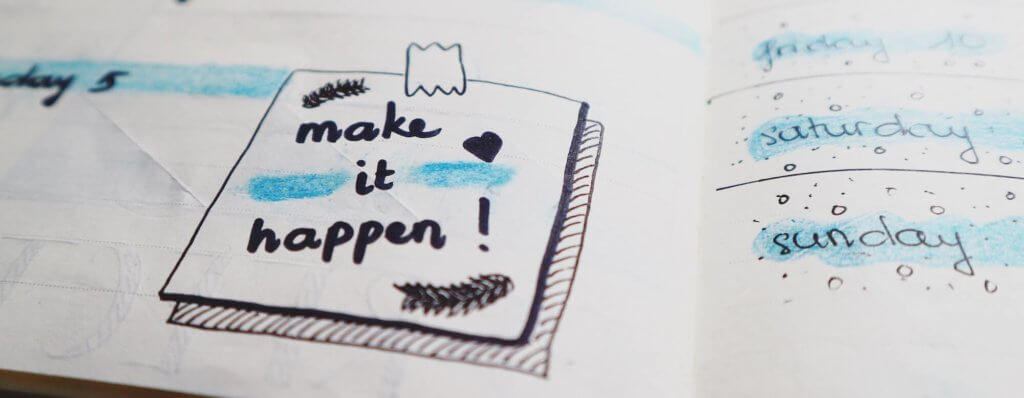 day 5
make
it
happen!
friday 10
saturday
sunday